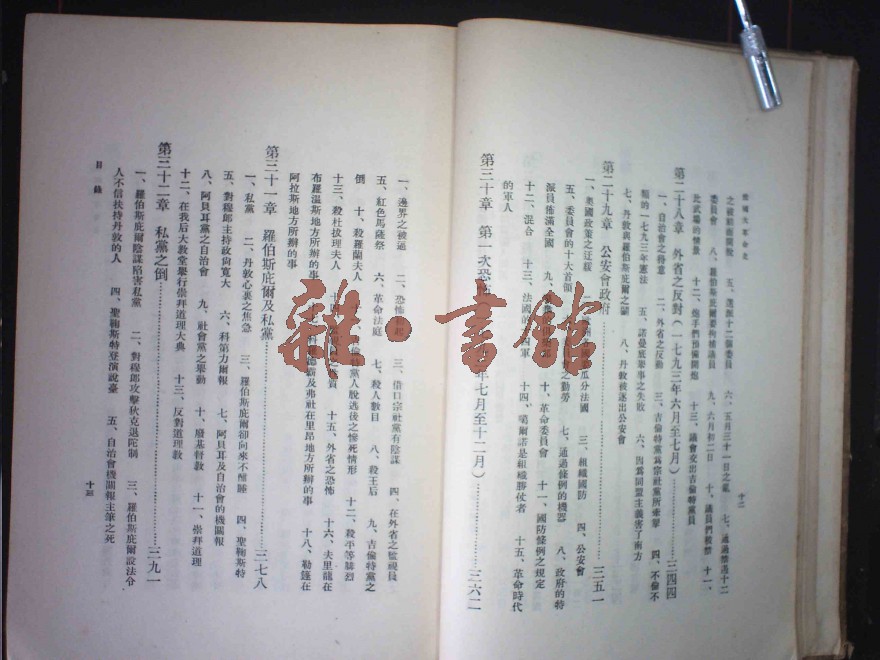 法國大革命史
十二
之被箝制開脫 五、選派十二個委員 六、五月三十一日之亂 七、通過懲治十二
委員會 八、羅伯斯庇爾要拘捕議員 九、六月初二日 十、議員們被禁 十一、
比武場的情景 十二、炮手們預備開炮 十三、議會交出吉倫特黨員
第二十八章 外省之反對（一七九三年六月至七月）……三四四
一、自治會之得意 二、外省之反動 三、吉倫特黨為宗社黨所牽掣 四、不倫不
類的一七九三年憲法 五、諾曼底舉事之失敗 六、四為同盟主義害了南方
七、丹敦與羅伯斯庇爾之關 八、丹敦被逐出公安會
第二十九章 公安會政府……三五一
一、奧國政策之迂緩 瓜分法國 三、組織國防 四、公安會
五、委員會的十大首領 之勤勞 七、通過條例的機器 八、政府的特
派員佈滿全國 九、 十、革命委員會 十一、國防條例之規定
十二、混合 十三、法國的 四軍 十四、喀爾諾是組織勝仗者 十五、革命時代
的軍人
第三十章 第一次恐怖 年七月至十二月）……三六二
一、邊界之被逼 二、恐怖 三、借口宗社黨有陰謀 四、在外省之監視員
五、紅色馬薩祭 六、革命法庭 七、殺人數目 八、殺王后 九、吉倫特黨之
倒 十、殺羅蘭夫人 倫特黨人脫逃後之慘死情形 十二、殺平等腓烈
十三、殺杜拔理夫人 十四 質 十五、外省之恐怖 十六、夫里龍在
布羅溫斯地方所辦的事 十七、科 德霸及弗社在里昂地方所辦的事 十八、勒篷在
阿拉斯地方所辦的事
第三十一章 羅伯斯庇爾及私黨……三七八
一、私黨 二、丹敦心裏之焦急 三、羅伯斯庇爾卻向來不酣睡 四、聖鞠斯特
五、對程郎主持政尚寬大 六、科第力爾報 七、阿貝耳及自治會的機關報
八、阿貝耳黨之自治會 九、社會黨之舉動 十、廢基督教 十一、崇拜道理
十二、在我后大教堂舉行崇拜道理大典 十三、反對道理教
第三十二章 私黨之倒……三九一
一、羅伯斯庇爾陰謀陷害私黨 二、對程郎攻擊秋克退陀制 三、羅伯斯庇爾設法令
人不信扶持丹敦的人 四、聖鞠斯特登演說臺 五、自治會機關報主筆之死
目錄
十三
雜·書館